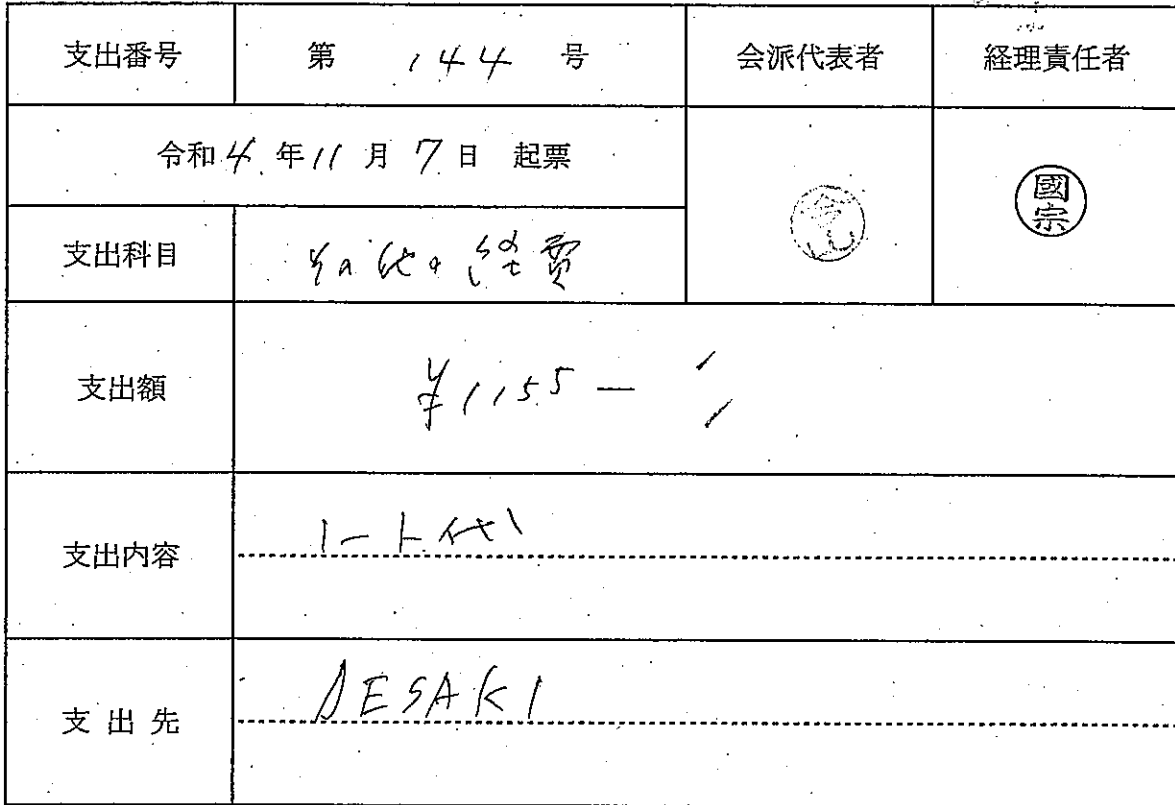 支出番号 第 144 号 会派代表者 経理責任者
令和4年11月7日 起票
國宗
支出科目 その他の経費
支出額 ¥1155-
支出内容 ノート代
支出先 DESAKI